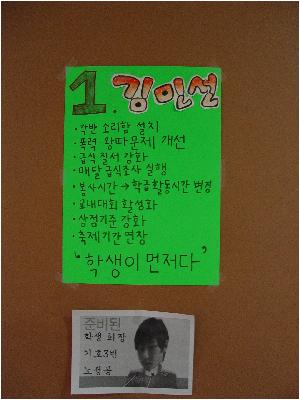 1. 김민선
· 각반 소리함 설치
· 폭력 왕따문제 개선
· 급식 질서 강화
· 매달 급식조사 실행
· 봉사시간 → 학급활동시간 변경
· 교내대회 활성화
· 상점기준 강화
· 축제기간 연장
‘학생이 먼저다’
준비된
학생 회장
기호3번